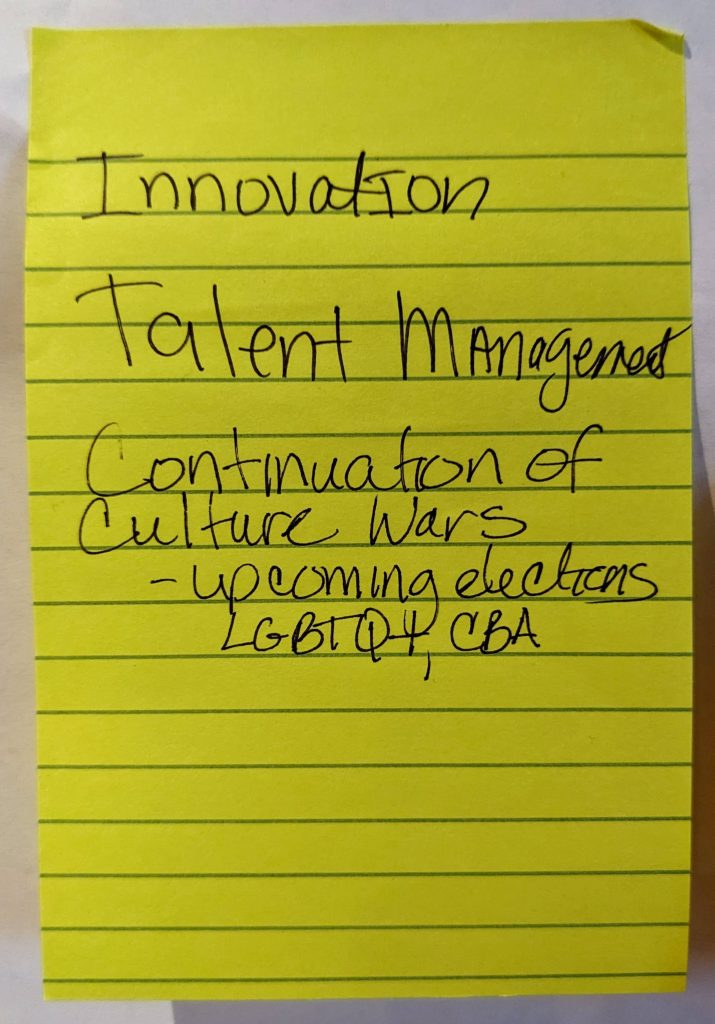 Innovation
Talent Management
Continuation of
Culture Wars
- upcoming elections
LGBTQ+, CBA